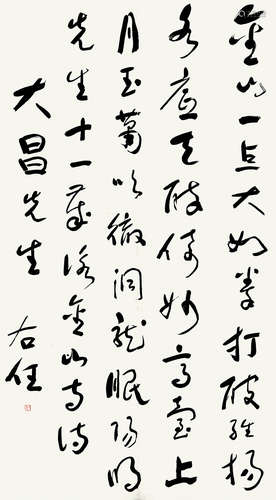 金山一点大如拳打破維揚
水底天醉倚妙高臺上
月玉簫吹徹洞龍眠陽明
先生十一歲詠金山寺詩
大昌先生
右任